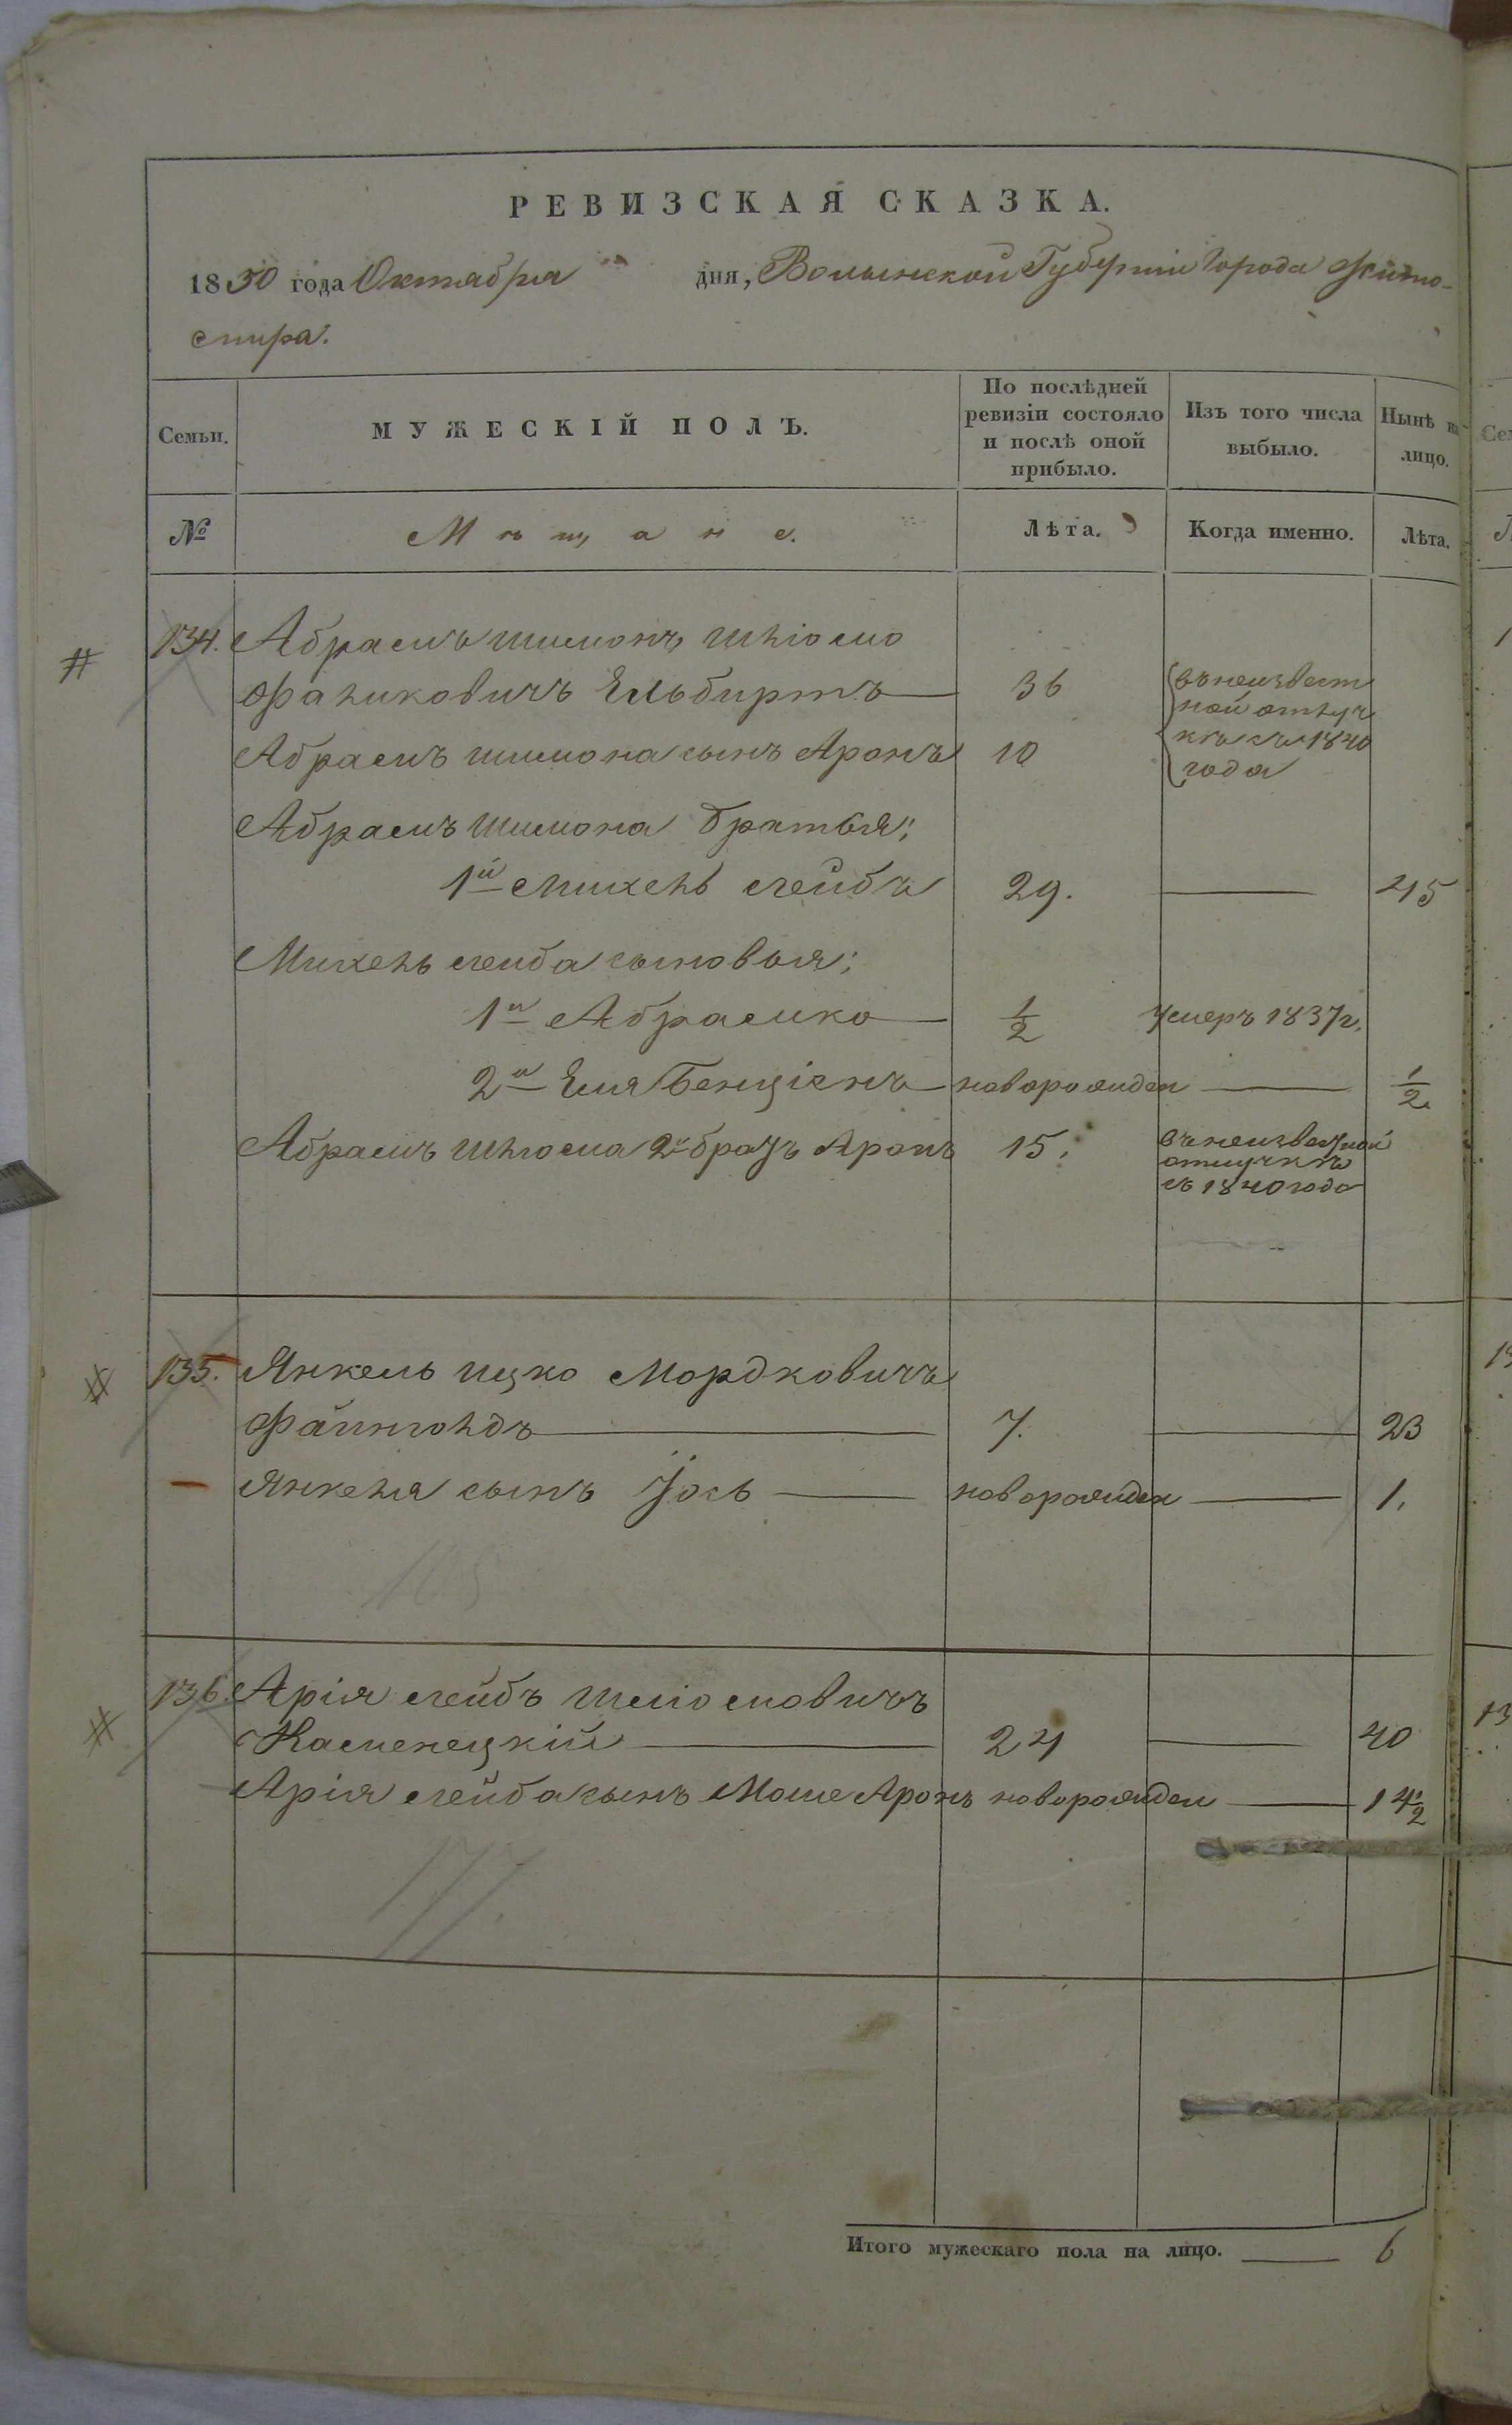 РЕВИЗСКАЯ СКАЗКА.
1850 года Октября дня, Волынской Губерніи Города Жито-
мира.
Семьи. МУЖЕСКІЙ ПОЛЪ. По послѣдней ревизіи состояло и послѣ оной прибыло. Изъ того числа выбыло. Нынѣ на лицо.
№ Мѣщане. Лѣта. Когда именно. Лѣта.
134. Абрамъ Шимонъ Шліомо
Фаликовичъ Ельбиртъ 36 въ неизвест
ной отлуч
Абрамъ Шимона сынъ Аронъ 10 кѣ съ 1840
года
Абрамъ Шимона братья;
1й Михель Лейбъ 29. 45
Михель Лейба сыновья;
1й Абрамко 1/2 умеръ 1837 г.
2й Еля Бенціенъ новорожден 1/2
Абрамъ Шліома 2й братъ Аронъ 15. въ неизвестной
отлучкѣ
съ 1840 года
135. Янкель Ицко Мордковичъ
Файнгольдъ 7. 23
Янкеля сынъ Іось новорожден 1.
105
136. Арія Лейбъ Шліомовичъ
Каменецкій 24 40
Арія Лейба сынъ Моше Аронъ новорожден 14 1/2
177.
Итого мужескаго пола на лицо. 6